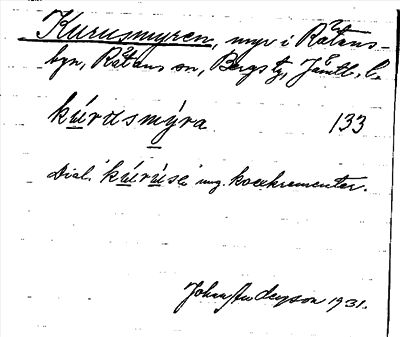 Kurusmyren, myr i Rätans-
byn, Rätans sn, Bergs tg, Jämtl. l.
kúrusmýra 133
Dial. kúrúse mg. koexkrementer.
Johan Anderson 1931.